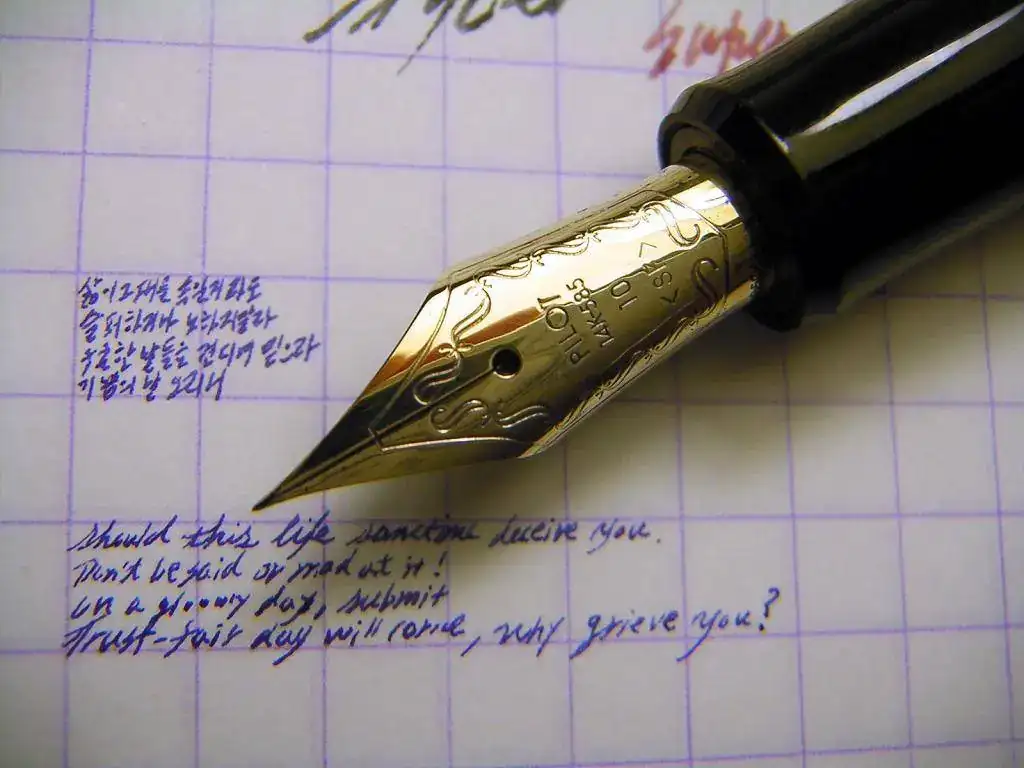 Super
PILOT
14K-585
10
삶이 그대를 속일지라도
슬퍼하거나 노하지말라
우울한 날들을 견디며 믿으라
기쁨의 날 오리니
should this life sometime deceive you.
Don't be said or mad at it!
on a gloomy day, submit
Trust-fair day will come, why grieve you?